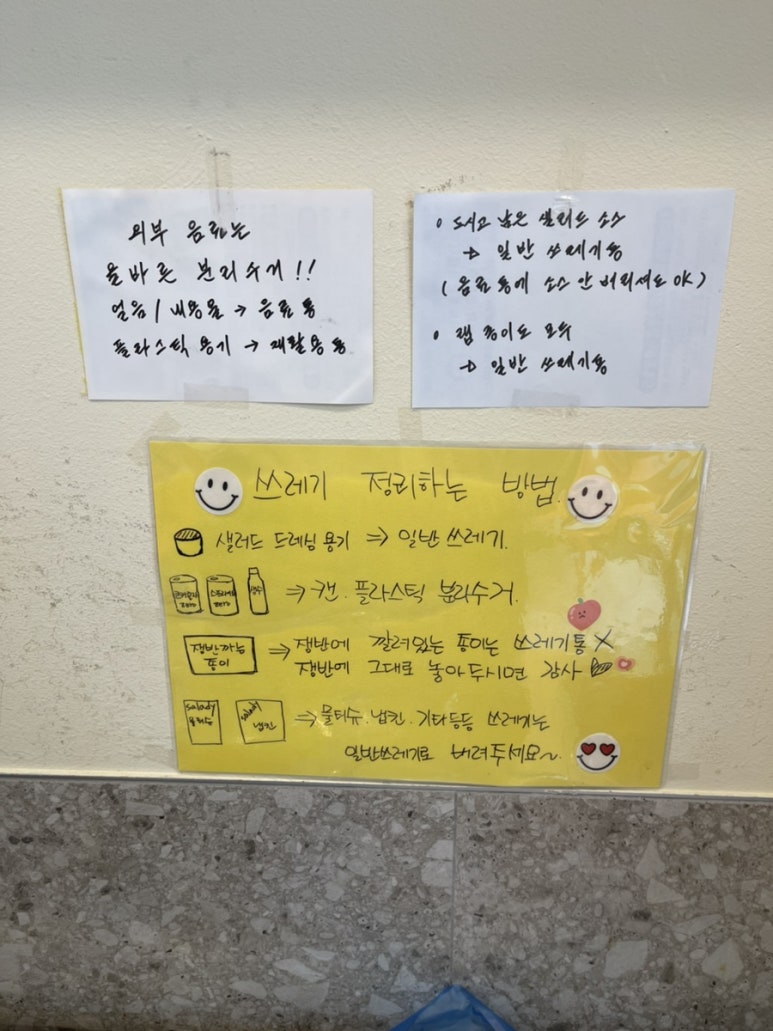 외부 음료는
올바른 분리수거!!
얼음/내용물 → 음료통
플라스틱 용기 → 재활용통
• 드시고 남은 샐러드 소스
→ 일반 쓰레기통
(음료통에 소스 안 버리셔도 OK)
• 랩 종이도 모두
→ 일반 쓰레기통
쓰레기 정리하는 방법.
샐러드 드레싱 용기 ⇒ 일반 쓰레기.
zero
zero
⇒ 캔·플라스틱 분리수거.
쟁반까는
종이
⇒ 쟁반에 깔려있는 종이는 쓰레기통 X
쟁반에 그대로 놓아두시면 감사
salady
물티슈
salady
냅킨
⇒ 물티슈·냅킨·기타등등 쓰레기는
일반쓰레기로 버려주세요~